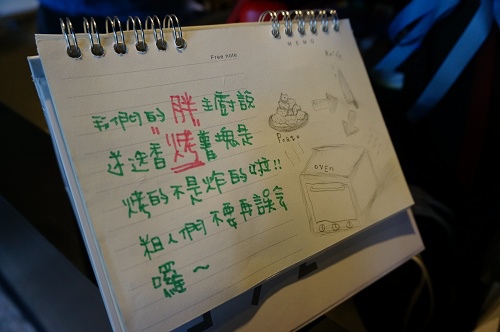 Free note
MEMO
我們的"胖"主廚說
迷迭香烤薯塊是
烤的不是炸的啦!!
粗人們不要再誤会
囉~
Potato
OVEN